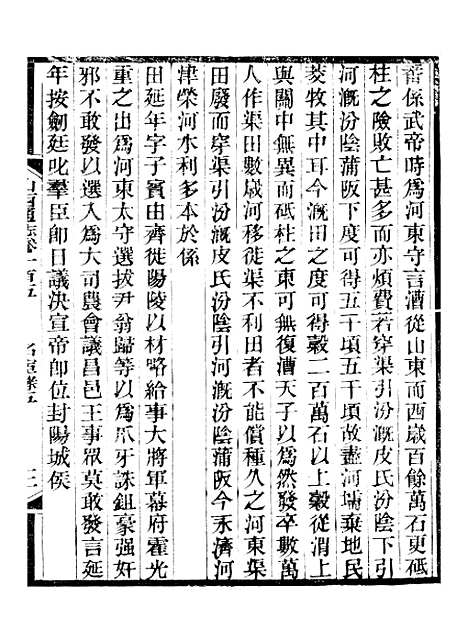 畨係武帝時爲河東守言漕從山東而西歲百餘萬石更砥
柱之險敗亡甚多而亦煩費若穿渠引汾漑皮氏汾陰下引
河漑汾陰蒲阪下度可得五千頃五千頃故盡河壖棄地民
茭牧其中耳今漑田之度可得穀二百萬石以上穀從渭上
與關中無異而砥柱之東可無復漕天子以爲然發卒數萬
人作渠田數歲河移徙渠不利田者不能償種久之河東渠
田廢而穿渠引汾漑皮氏汾陰引河漑汾陰蒲阪今永濟河
津榮河水利多本於係
田延年字子賓由齊徙陽陵以材略給事大將軍幕府霍光
重之出爲河東太守選拔尹翁歸等以爲爪牙誅鉏豪强奸
邪不敢發以選入爲大司農會議昌邑王事眾莫敢發言延
年按劒廷叱羣臣卽日議決宣帝卽位封陽城侯
山西通志卷一百五 名宦錄五 十二